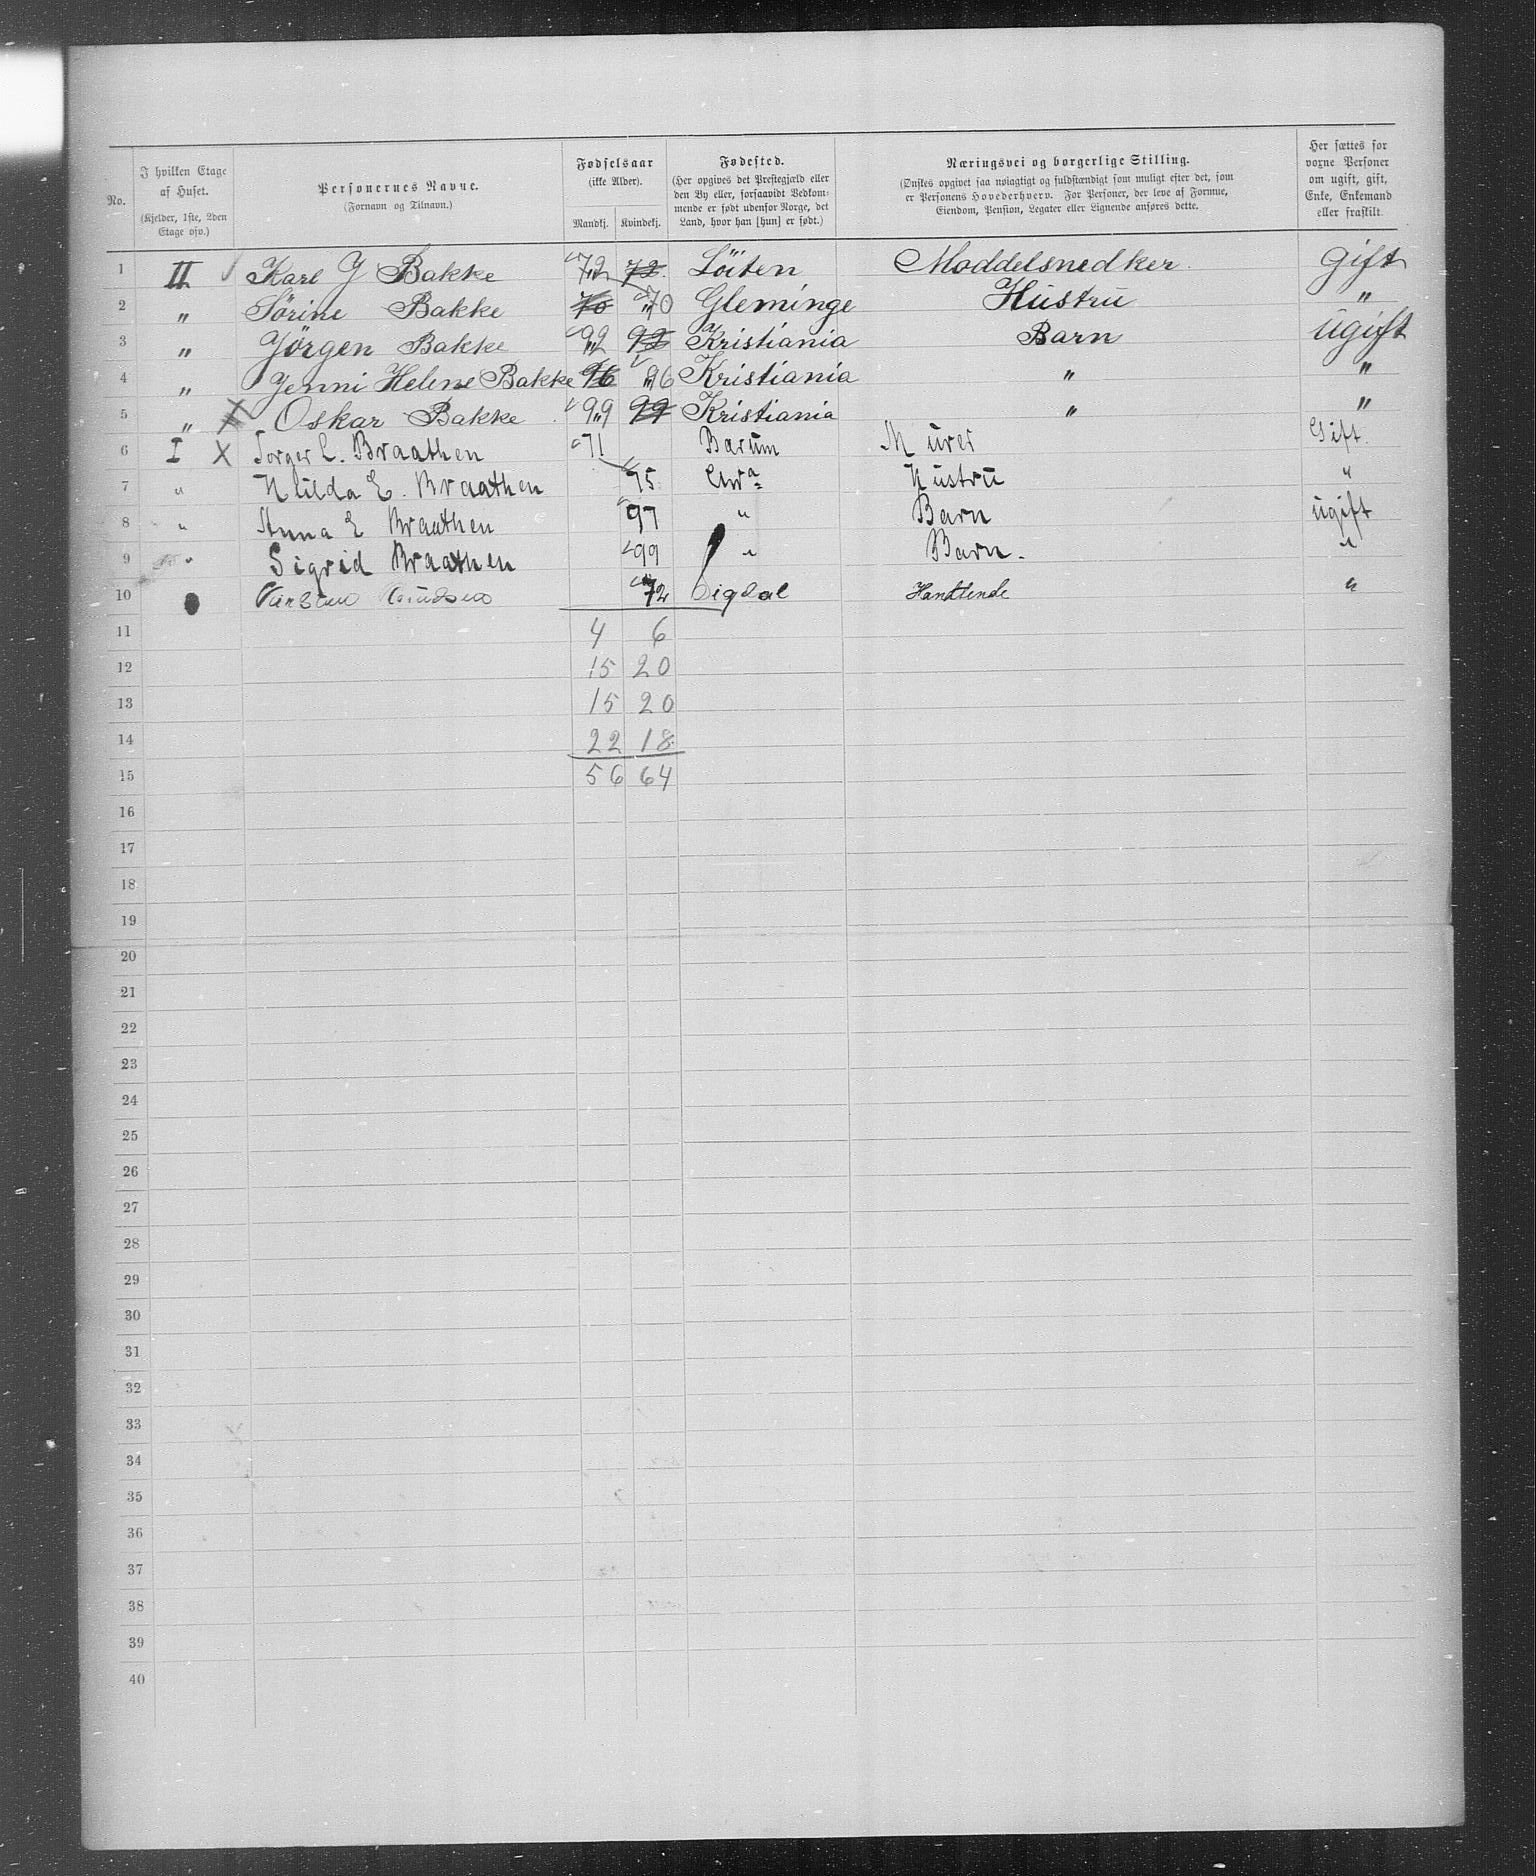 No.
I hvilken Etage af Huset.
(Kjelder, 1ste, 2den Etage osv.)
Personernes Navne.
(Fornavn og Tilnavn.)
Fødselsaar
(ikke Alder).
Mandkj. Kvindekj.
Fødested.
(Her opgives det Prestegjæld eller den By eller, forsaavidt Vedkommende er født udenfor Norge, det Land, hvor han [hun] er født.)
Næringsvei og borgerlige Stilling.
(Ønskes opgivet saa nøiagtigt og fuldstændigt som muligt efter det, som er Personens Hovederhverv. For Personer, der leve af Formue, Eiendom, Pension, Legater eller Lignende anføres dette.
Her sættes for voxne Personer om ugift, gift, Enke, Enkemand eller fraskilt.
1 II Karl J Bakke 72 72 Löiten Moddelsnedker gift
2 " Sörine Bakke 70 70 Gleminge Hustru "
3 " Jörgen Bakke 92 92 Kristiania Barn ugift
4 " Jenni Helene Bakke 96 96 Kristiania " "
5 " X Oskar Bakke 99 99 Kristiania " "
6 I X Torger L. Braathen 71 Barum Murer Gift.
7 " Hulda E. Braathen 75 Chra Hustru "
8 " Anna E Braathen 97 " Barn ugift
9 " Sigrid Braathen 99 " Barn. "
10 72 Sigdal Handlende "
11 4 6
12 15 20
13 15 20
14 22 18
15 56 64
16
17
18
19
20
21
22
23
24
25
26
27
28
29
30
31
32
33
34
35
36
37
38
39
40